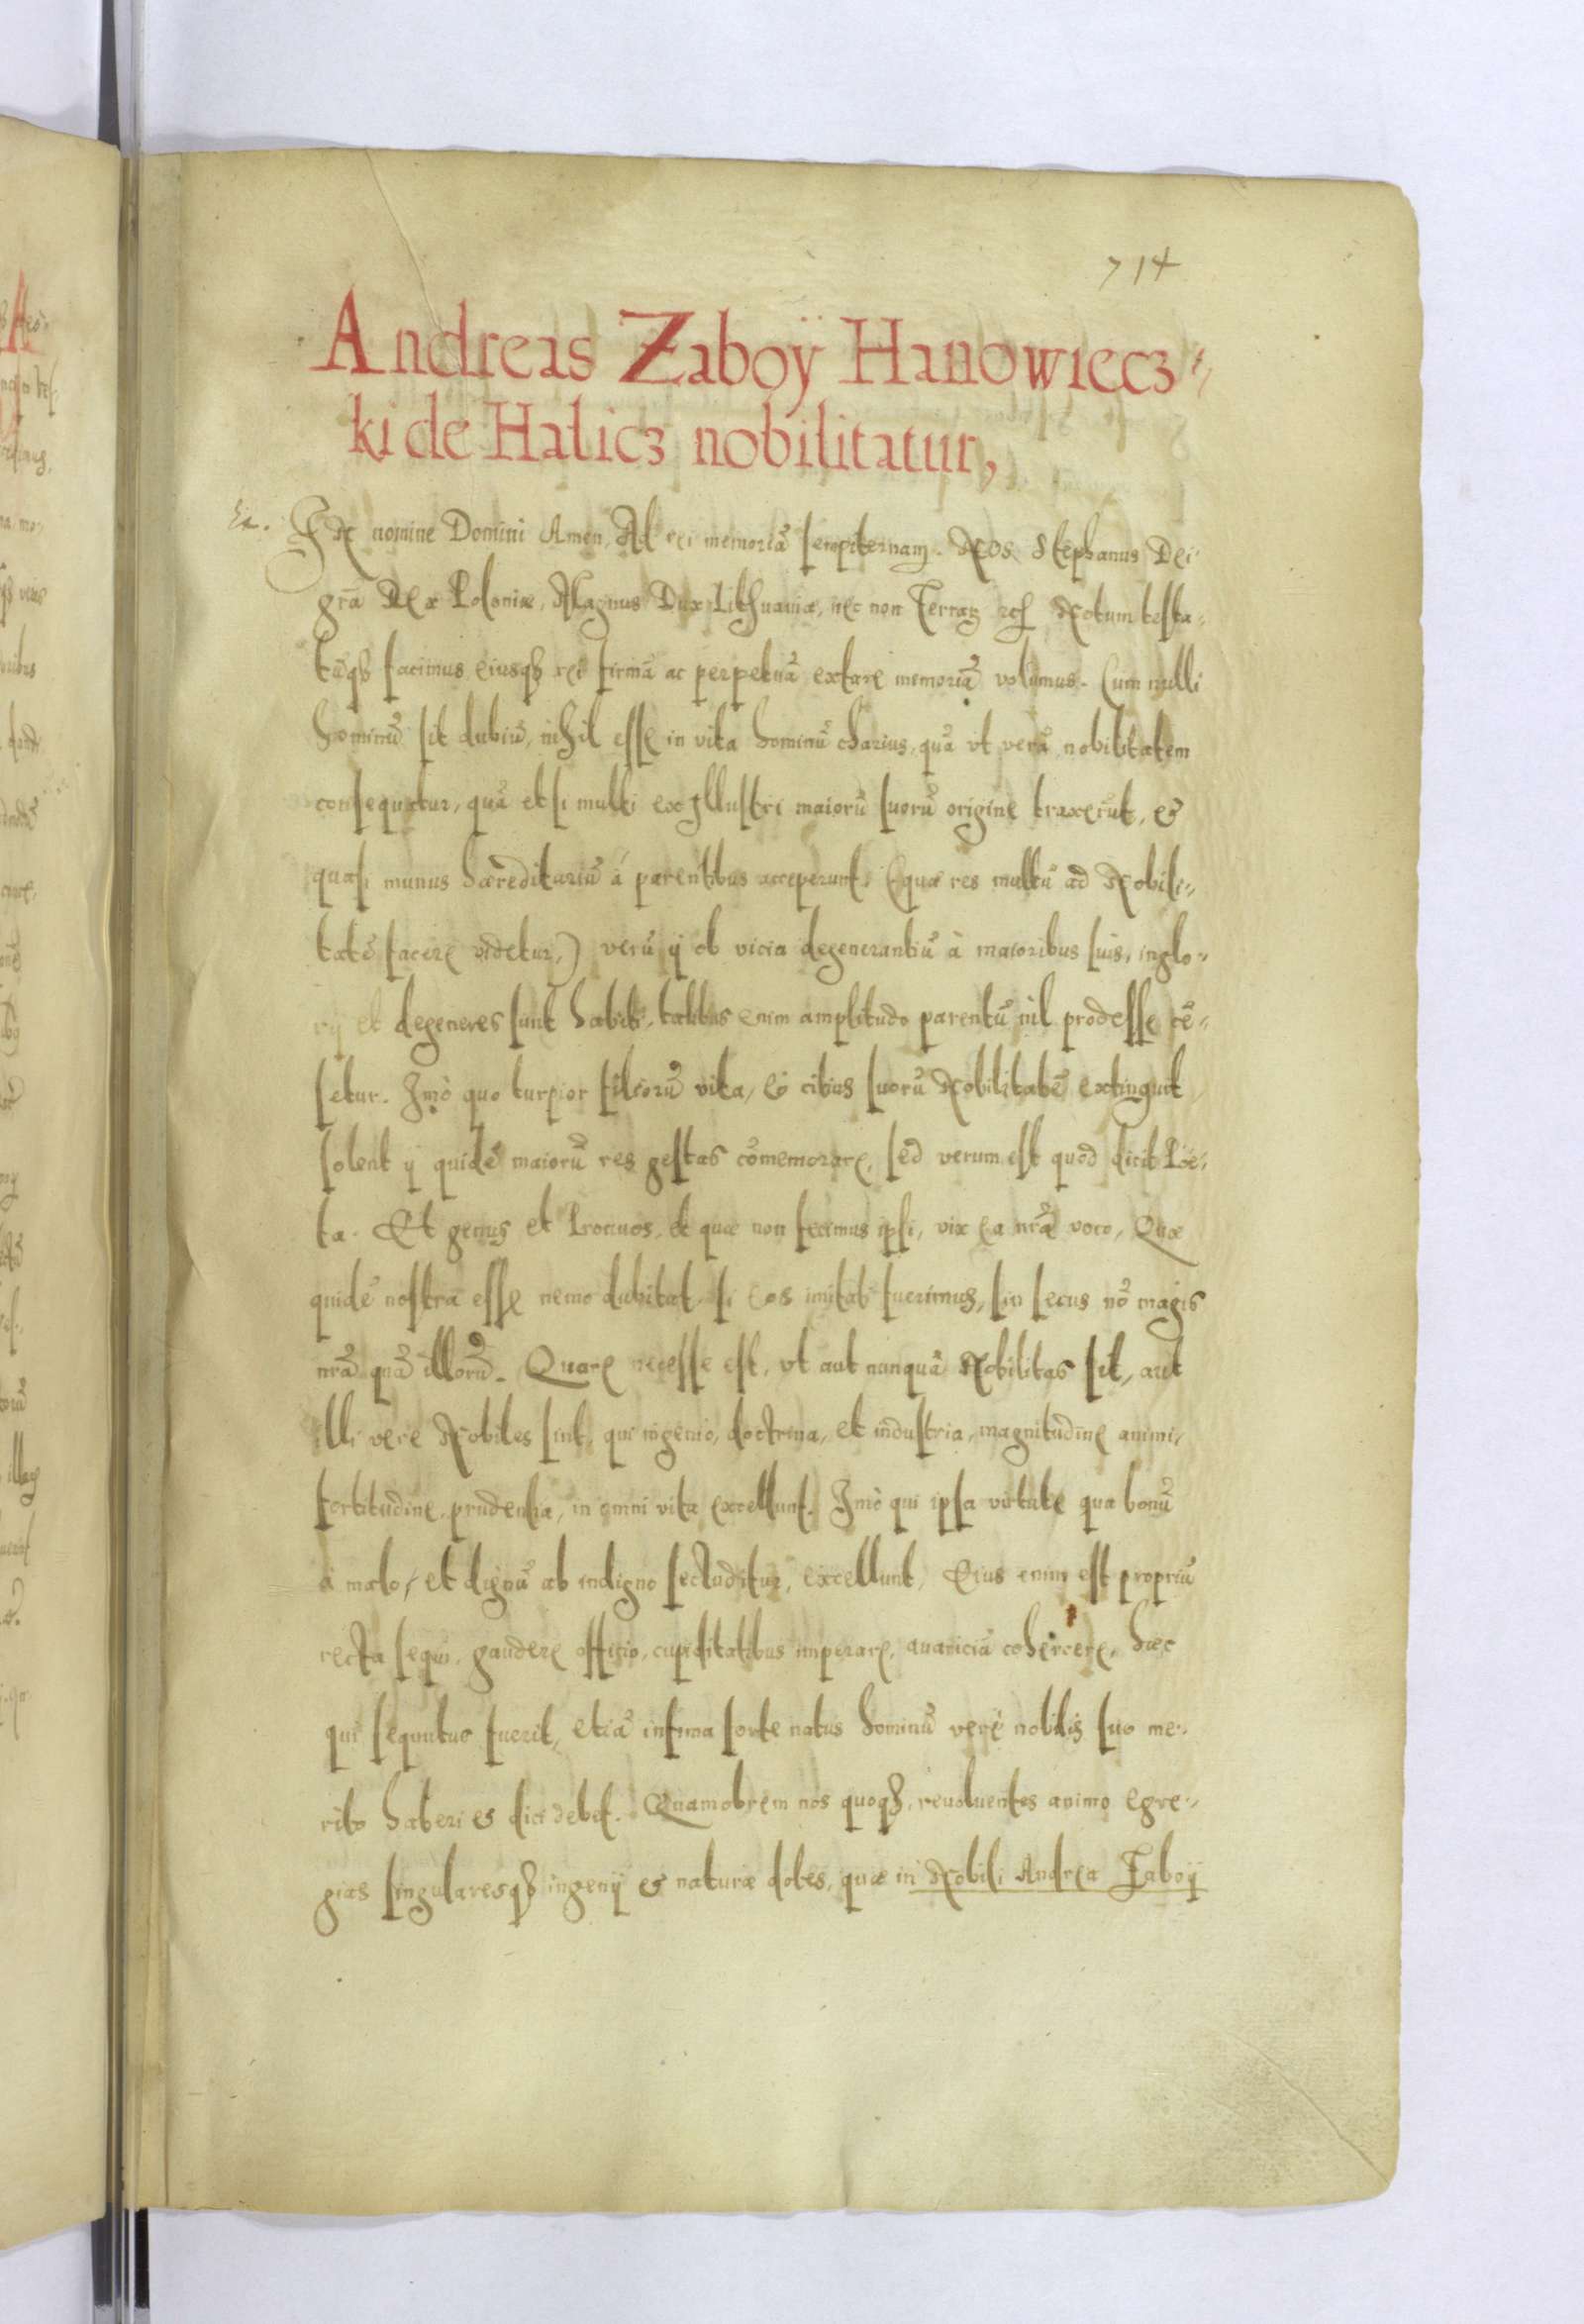 714
Andreas Zaboÿ Hanowiecz„
ki de Halicz nobilitatur,
In nomine Domini Amen, Ad rei memoriã sempiternam. Nos Stephanus Dei
grã Rex Poloniæ, Magnus Dux Lithuaniæ, nec non Terrarꝫ Notum testa„
tũqꝫ facimus eiusqꝫ rei firmã ac perpetuã extare memoriã volumus. Cum nulli
hominũ sit dubiũ, nihil esse in vita hominũ charius, quã vt verã nobilitatem
consequatur, quã etsi multi ex Illustri maiorũ suorũ origine traxerũt, et
quasi munus hæreditariũ á parentibus acceperunt. (quæ res multũ ad Nobili„
tatẽ facere videtur,) verũ ij ob vicia degenerantiũ à maioribus suis, inglo„
rij et degeneres sunt habiti, talibus enim amplitudo parentũ nil prodesse cẽ„
setur. Imò quo turpior filiorũ vita, eò citius suorũ Nobilitatẽ extinguit,
solent ij quidẽ maiorũ res gestas cõmemorare, sed verum est quod dicit Poë„
ta. Et genus et Proauos, et quæ non fecimus ipsi, vix ea nrã voco, Quæ
quidẽ nostra esse nemo dubitat, si eos imitati fuerimus, sin secus nõ magis
nrã quã illorũ. Quare necesse est, vt aut nunquã Nobilitas sit, aut
illi vere Nobiles sint, qui ingenio, doctrina, et industria, magnitudine animi,
fortitudine, prudentia, in omni vita excellunt. Imò qui ipsa virtute qua bonũ
a malo, et dignũ ab indigno secluditur, excellunt, Eius enim est propriũ
recta sequi, gaudere officio, cupiditatibus imperare, auariciã cohercere, hæc
qui sequutus fuerit, etiã infima sorte natus hominũ verè nobilis suo me„
rito haberi et dici debet. Quamobrem nos quoqꝫ, reuoluentes animo egre„
gias singularesqꝫ ingenij et naturæ dotes, quæ in Nobili Andrea Zaboij